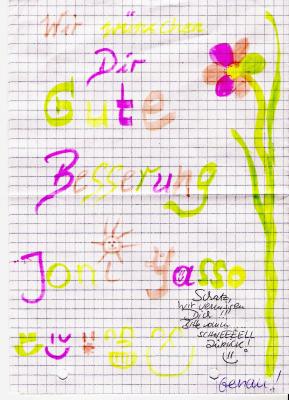 Wir wünschen
Dir
Gute
Besserung
Joni Yasso
Schatz,
wir vermissen
Dich !!!
Bitte komm
SCHNEEEELL
zurück!
Genau!